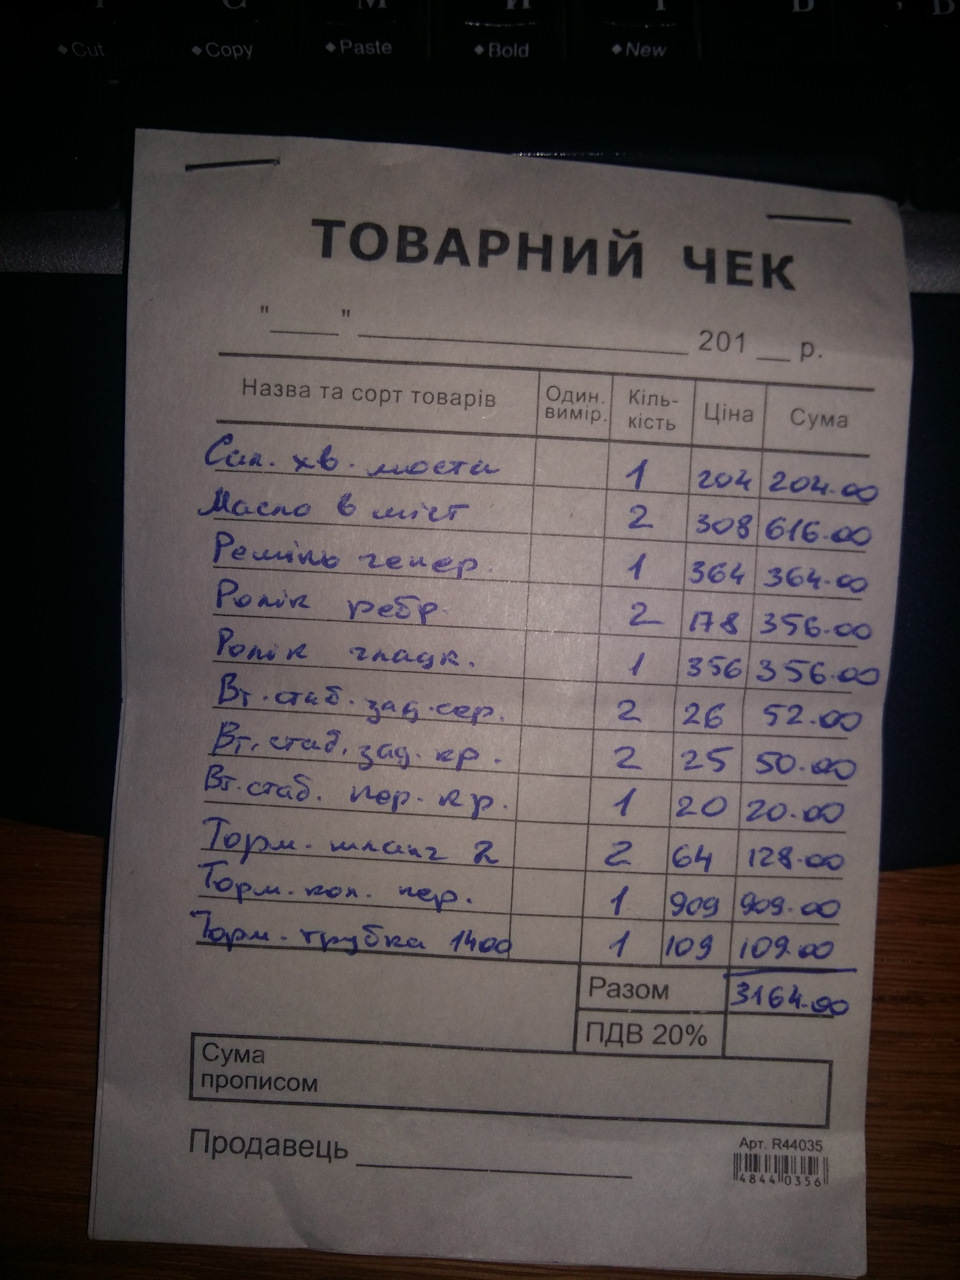 Cut Copy Paste Bold New
ТОВАРНИЙ ЧЕК
"____" ____________ 201 __ р.
Назва та сорт товарів Один. вимір. Кіль-кість Ціна Сума
Сал. хв. моста 1 204 204.00
Масло в міст 2 308 616.00
Ремінь генер. 1 364 364.00
Ролік ребр. 2 178 356.00
Ролік гладк. 1 356 356.00
Вт. стаб. зад. сер. 2 26 52.00
Вт. стаб. зад. кр. 2 25 50.00
Вт. стаб. пер. кр. 1 20 20.00
Торм. шланг 2 2 64 128.00
Торм. кол. пер. 1 909 909.00
Торм. трубка 1400 1 109 109.00
Разом 3164.00
ПДВ 20%
Сума
прописом
Продавець
Арт. R44035
48440356